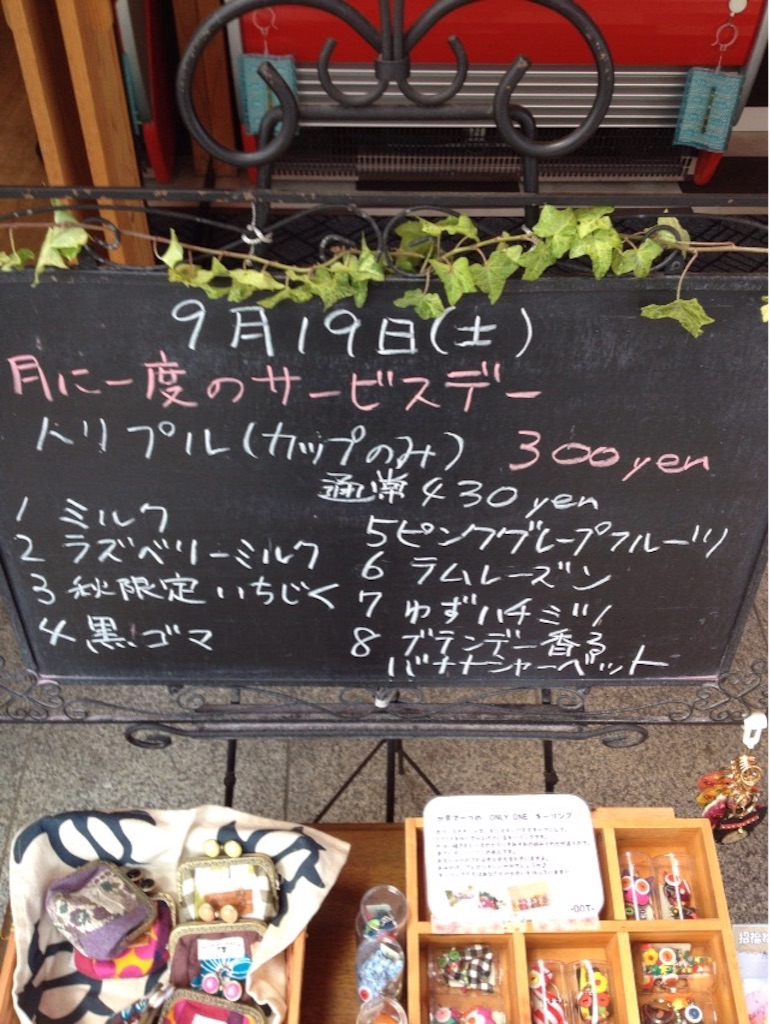 9月19日(土)
月に一度のサービスデー
トリプル(カップのみ) 300yen
通常430yen
1 ミルク
2 ラズベリーミルク
3 秋限定いちじく
4 黒ゴマ
5ピンクグレープフルーツ
6 ラムレーズン
7 ゆずハチミツ
8 ブランデー香る
バナナシャーベット
世界で一つの ONLY ONE キーリング
-DOT-